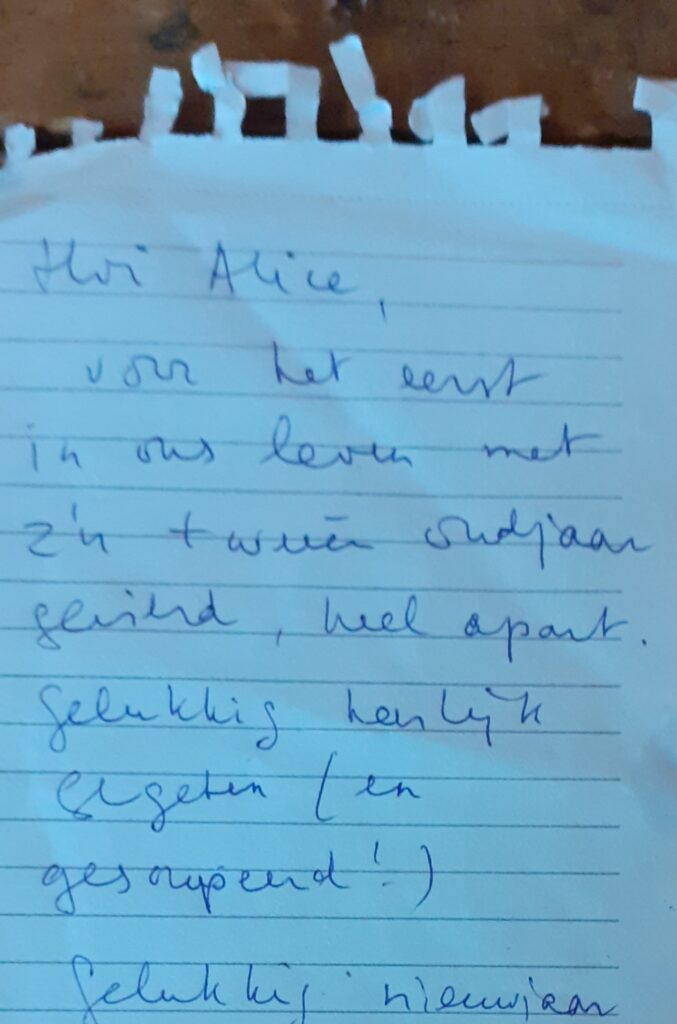 Hoi Alice,
voor het eerst
in ons leven met
z'n tweeën oudjaar
gevierd, heel apart.
Gelukkig heerlijk
gegeten (en
gesoupeerd!)
Gelukkig nieuwjaar